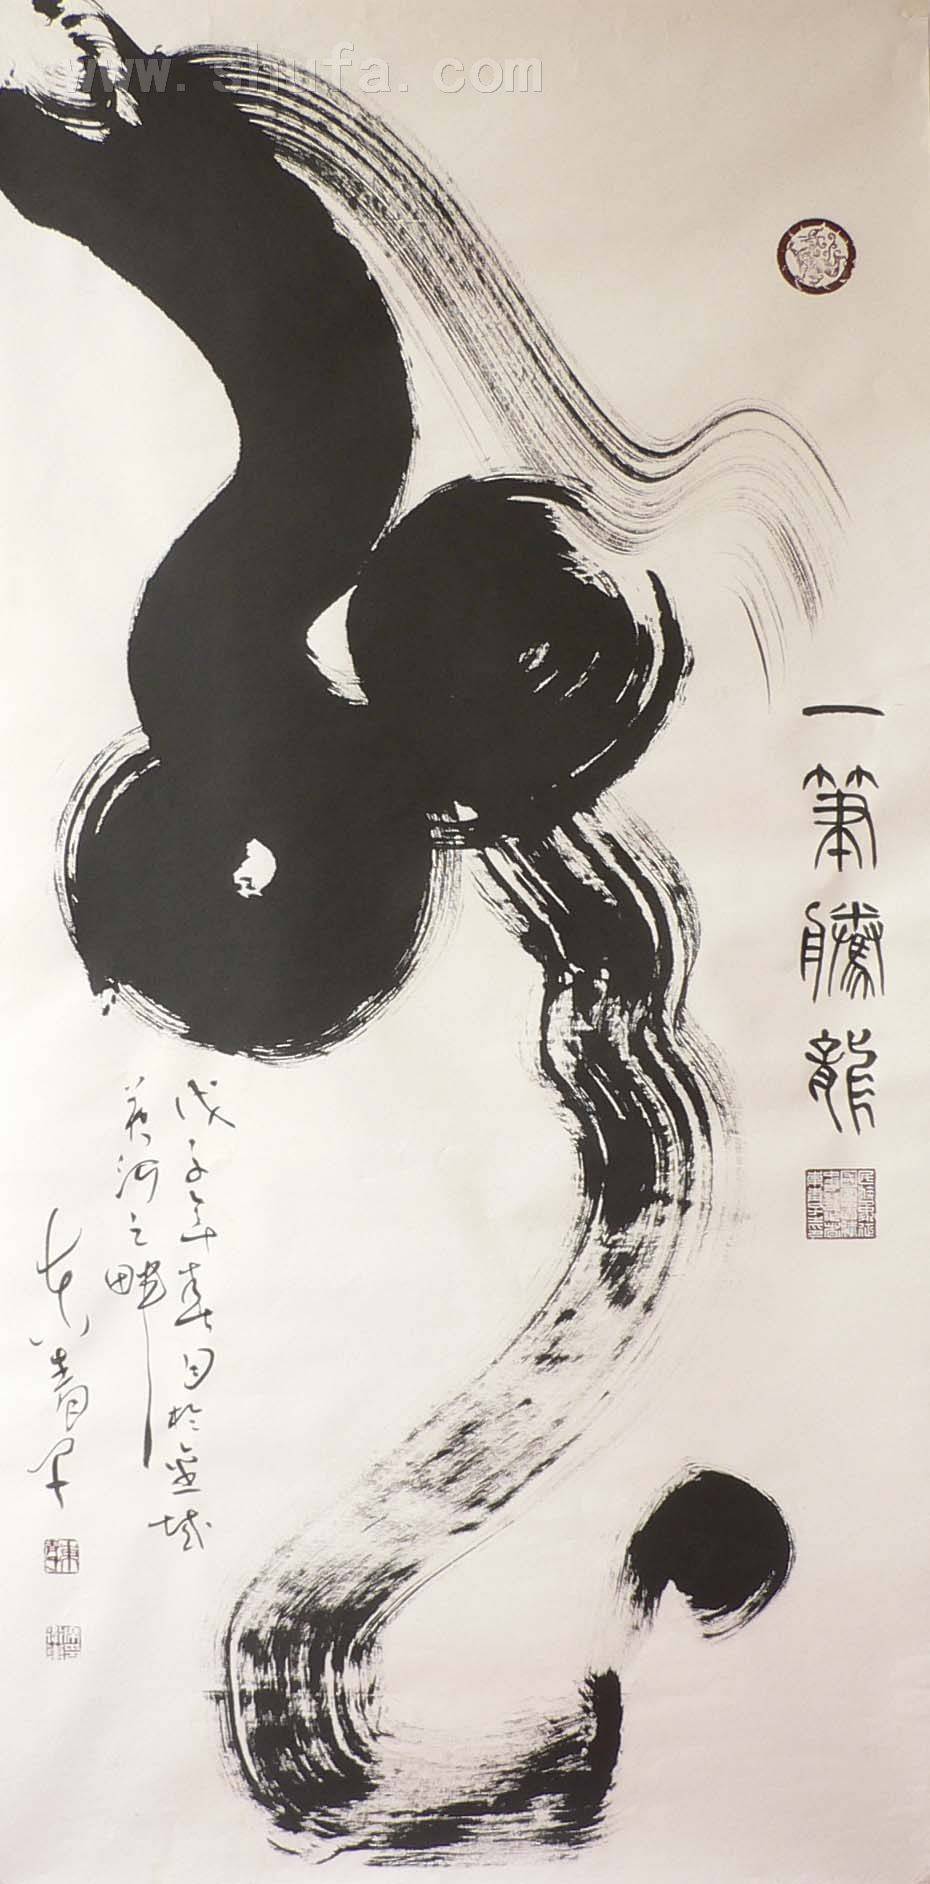 www.shufa.com
一筆騰龍
戊子年春日於金城
黃河之畔
青子